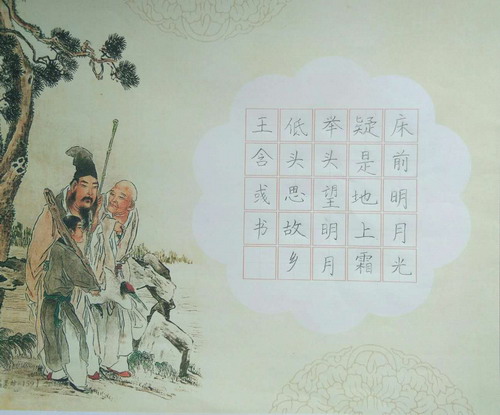 床前明月光
疑是地上霜
举头望明月
低头思故乡
王含彧书